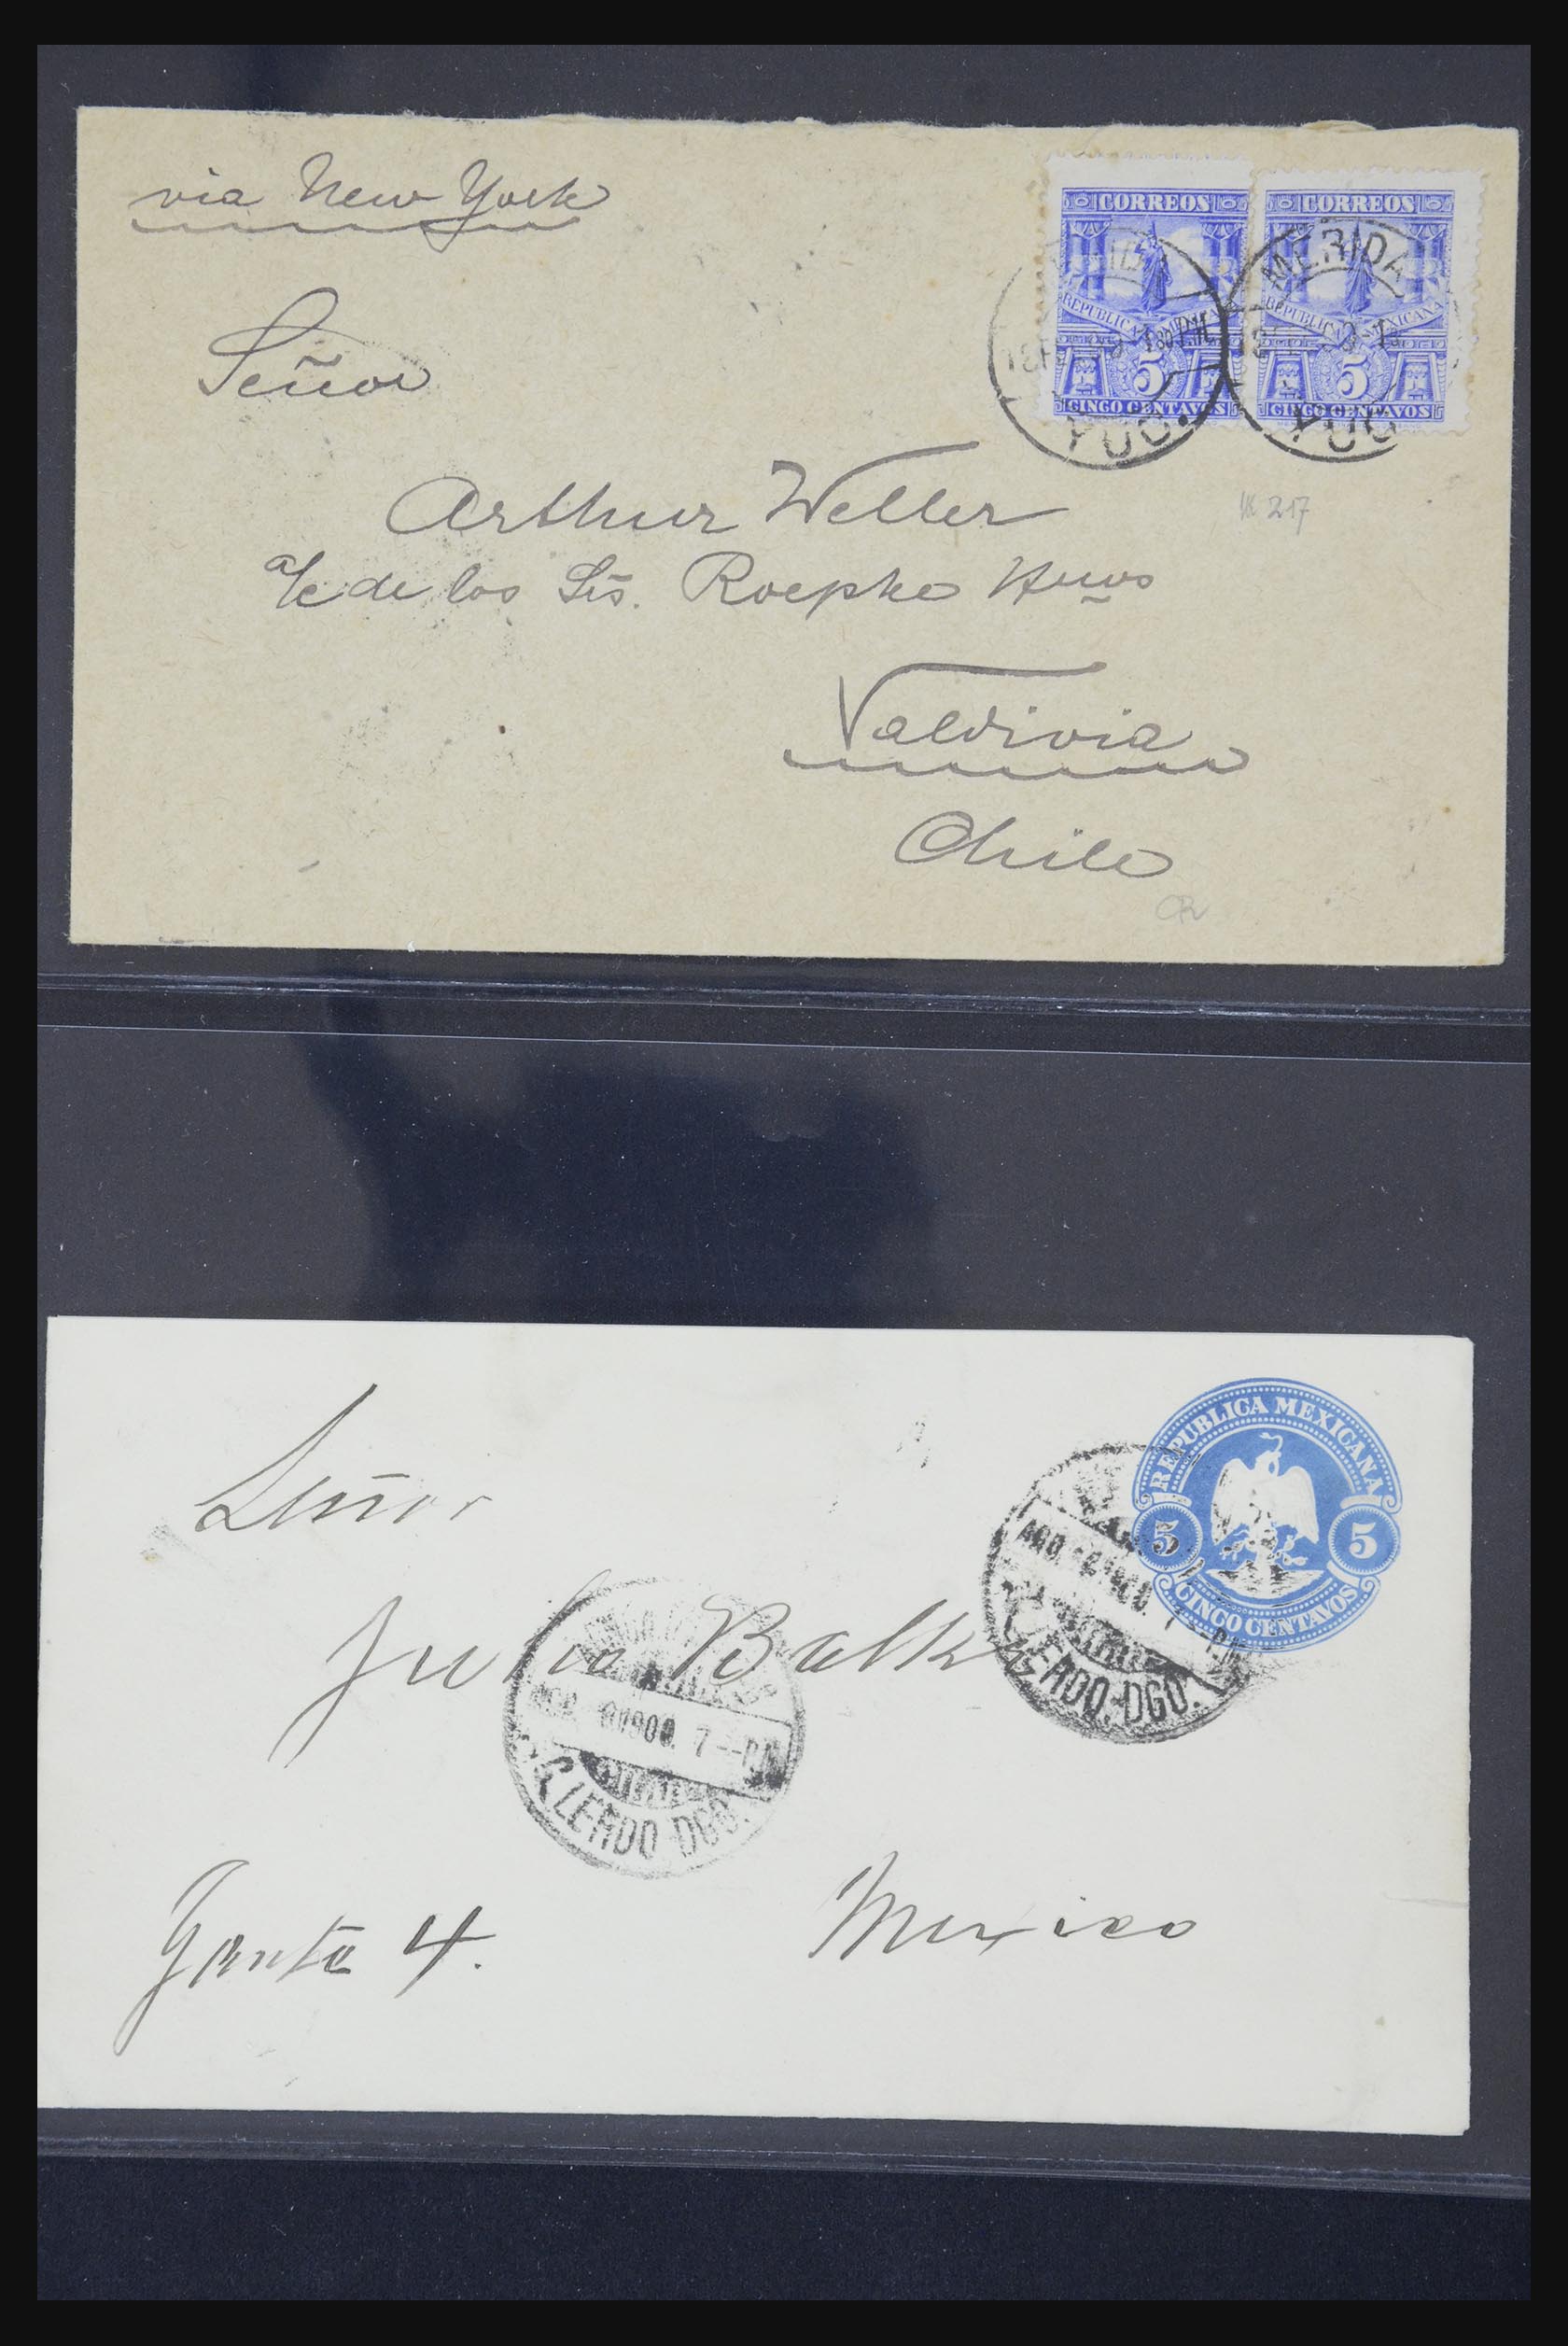 via New York
CORREOS CORREOS
MERIDA
REPUBLICA MEXICANA REPUBLICA MEXICANA
5 5
CINCO CENTAVOS CINCO CENTAVOS
YUC. YUC
Señor
Arthur Weller
a/c de los Srs. Roepke Hnos
Valdivia
Chile
REPUBLICA MEXICANA
5 5
CINCO CENTAVOS
Señor
Julio
AGO. 1900. 7 - PM
LERDO. DGO.
1900. 7 - PM
LERDO DGO.
Gante 4.
Mexico